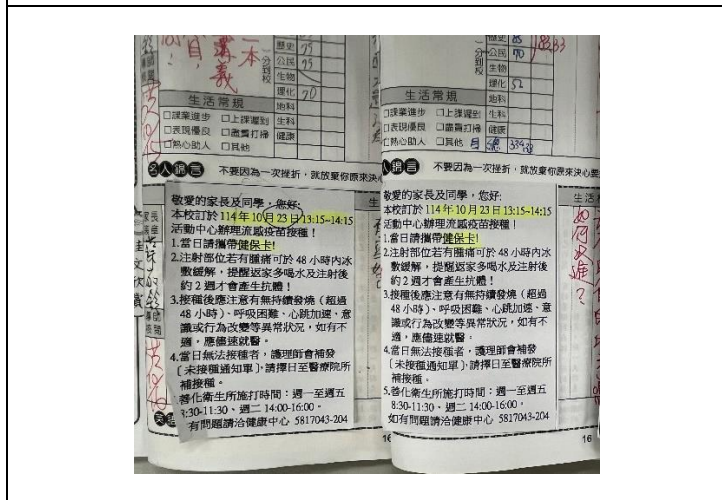 一本講義
歷史 75
公民 75
生物
理化 70
地科
生活常規
生科
健康
□課業進步 □上課遲到
□表現優良 □盡責打掃
□熱心助人 □其他
名人錦言 不要因為一次挫折,就放棄你原來決心
敬愛的家長及同學,您好:
本校訂於114年10月23日13:15~14:15
活動中心辦理流感疫苗接種!
1.當日請攜帶健保卡!
2.注射部位若有腫痛可於 48 小時內冰
敷緩解,提醒返家多喝水及注射後
約 2 週才會產生抗體!
3.接種後應注意有無持續發燒(超過
48 小時)、呼吸困難、心跳加速、意
識或行為改變等異常狀況,如有不
適,應儘速就醫。
4.當日無法接種者,護理師會補發
〔未接種通知單〕,請擇日至醫療院所
補接種。
善化衛生所施打時間:週一至週五
8:30-11:30、週二 14:00-16:00。
有問題請洽健康中心 5817043-204
16
歷史 85
公民 70
生物
理化 52
地科
生活常規
生科
健康
□課業進步 □上課遲到
□表現優良 □盡責打掃
□熱心助人 □其他
人錦言 不要因為一次挫折,就放棄你原來決心要
敬愛的家長及同學,您好:
本校訂於114年10月23日13:15~14:15
活動中心辦理流感疫苗接種!
1.當日請攜帶健保卡!
2.注射部位若有腫痛可於 48 小時內冰
敷緩解,提醒返家多喝水及注射後
約 2 週才會產生抗體!
3.接種後應注意有無持續發燒(超過
48 小時)、呼吸困難、心跳加速、意
識或行為改變等異常狀況,如有不
適,應儘速就醫。
4.當日無法接種者,護理師會補發
〔未接種通知單〕,請擇日至醫療院所
補接種。
5.善化衛生所施打時間:週一至週五
8:30-11:30、週二 14:00-16:00。
如有問題請洽健康中心 5817043-204
如何改進?
16